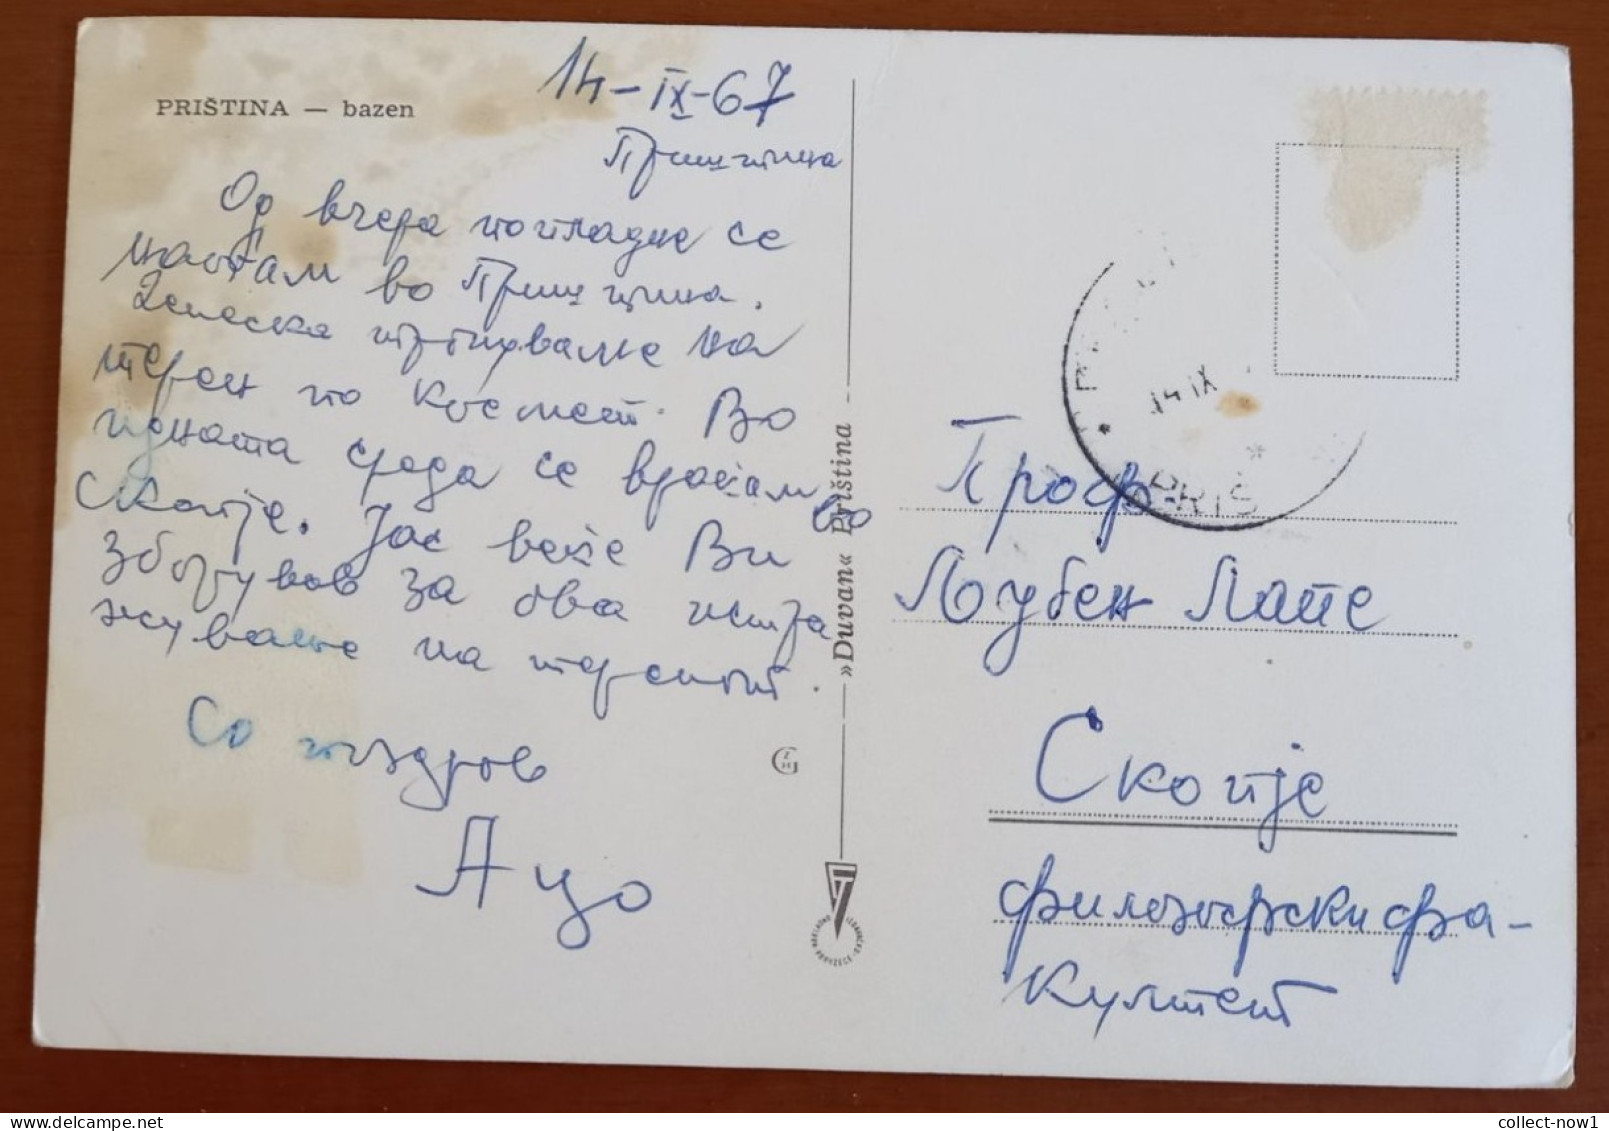 PRIŠTINA — bazen
14-IX-67
Приштина
Од вчера попладне се
наоѓам во Приштина.
Денеска тргнуваме на
терен по Космет. Во
идната среда се враќам во
Скопје. Јас веќе Ви
зборував за ова истра
жување на теренот.
Со поздров
Ацо
»Duvan« Priština
14 IX
PRIŠ
Проф.
Љубен Лапе
Скопје
филозофски фа-
култет
collect-now1